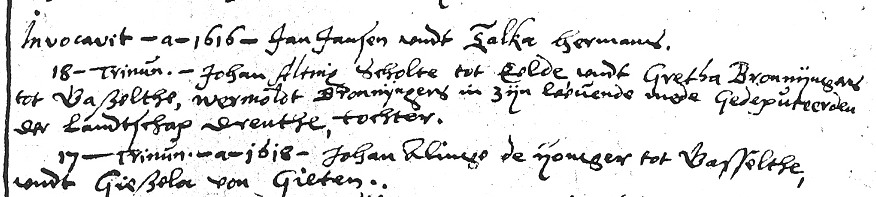 Invocavit - a - 1616 - Jan Jansen undt Talka Hermans.
18 - Trinun. - Johan Alting Scholte tot Eelde undt Gretha Bronnyngers
tot Vaßelthe, wermoldt Bronnyngers in zyn levende mede Gedeputeerden
der Landtschap Drenthe, tochter.
17 - Trinun. - a - 1618 - Johan Klinge de yonger tot Vasselthe,
undt Gießela von Gieten..